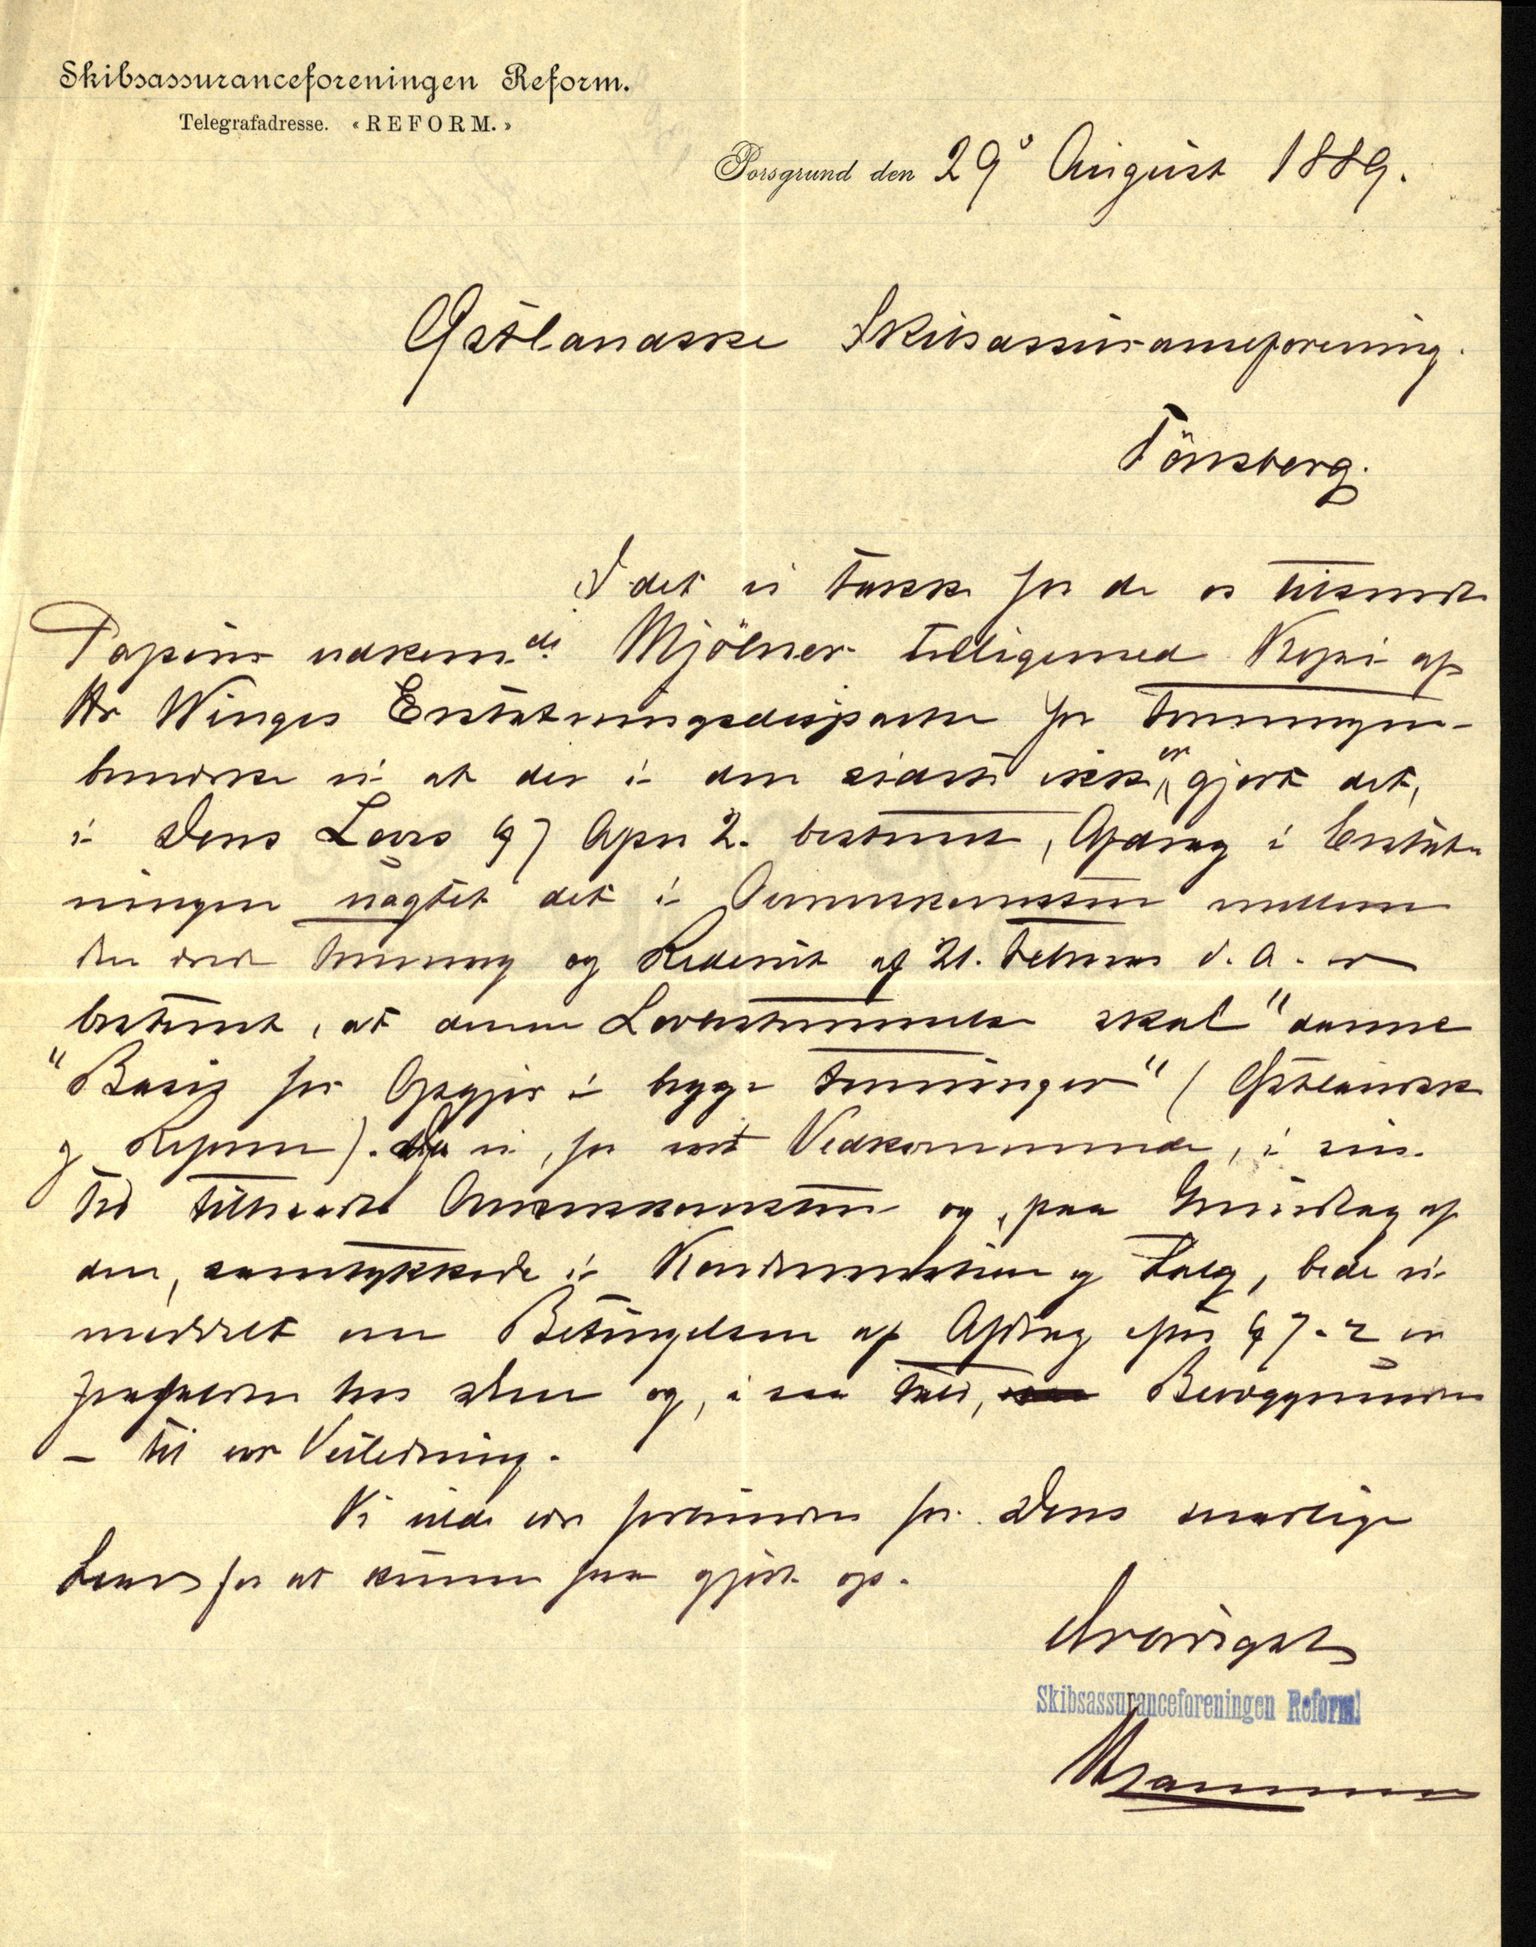 Skibsassuranceforeningen Reform.
Telegrafadresse. «REFORM.»
Porsgrund den 29' August 1889.
Østlandske Skibsassuranceforening.
Tönsberg.
I det vi takke for de os tilsendte
Papirer vedkom.de Mjölner tilligemed Kopi af
Hr Winges Erstatningsdispache for Foreningen
bemærke vi at der i den sidste ikke er gjort det,
i Deres Loves § 7 Afsn 2. bestemte, Afdrag i Erstat-
ningen uagtet det i Overenskomsten mellem
den ærede Forening og Rederiet af 21. Februar d. A. er
bestemt, at denne Lovbestemmelse skal "danne
"Basis for Opgjør i begge Foreninger" (Østlandske
og Reform). Da vi, for vort Vedkommende, i sin
Tid tiltraadte Overenskomsten og, paa Grundlag af
den, samtykkede i Kondemnation og Salg, bede vi
meddelt om Betingelsen af Afdrag efter § 7-2 er
frafalden hos Dem og, i saa Fald, Bevæggrunden
- til vor Veiledning.
Vi vilde være forbunden for Deres snarlige
Svar for at kunne faa gjort op.
Ærbødigst
Skibsassuranceforeningen Reform